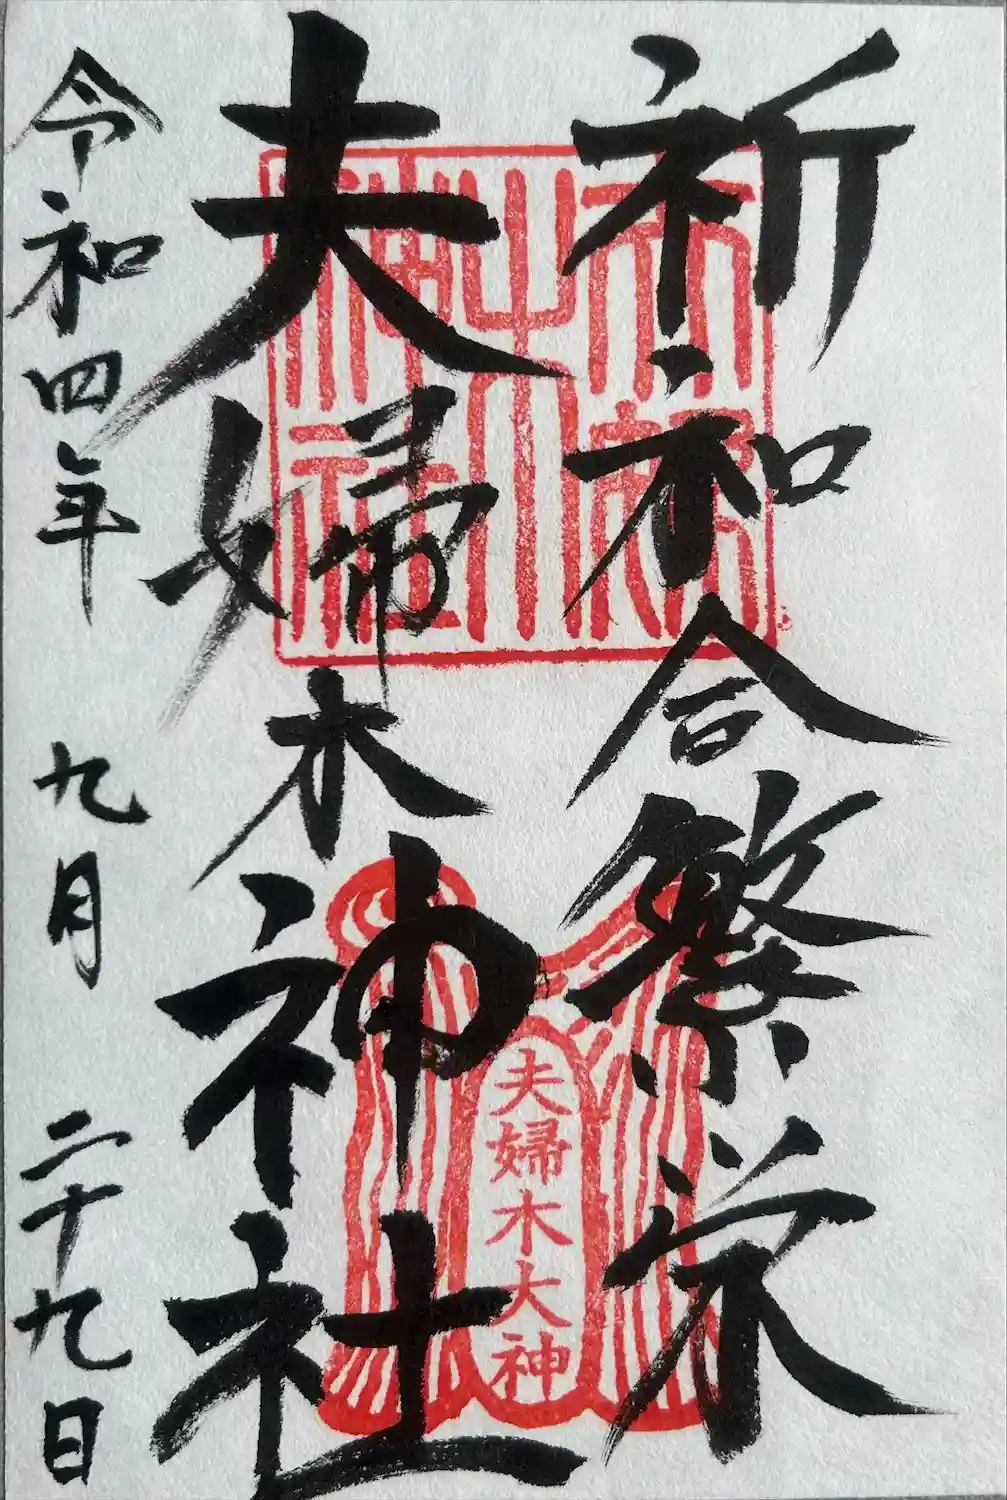 祈和合繁栄
夫婦木神社
令和四年 九月 二十九日
夫婦木大神